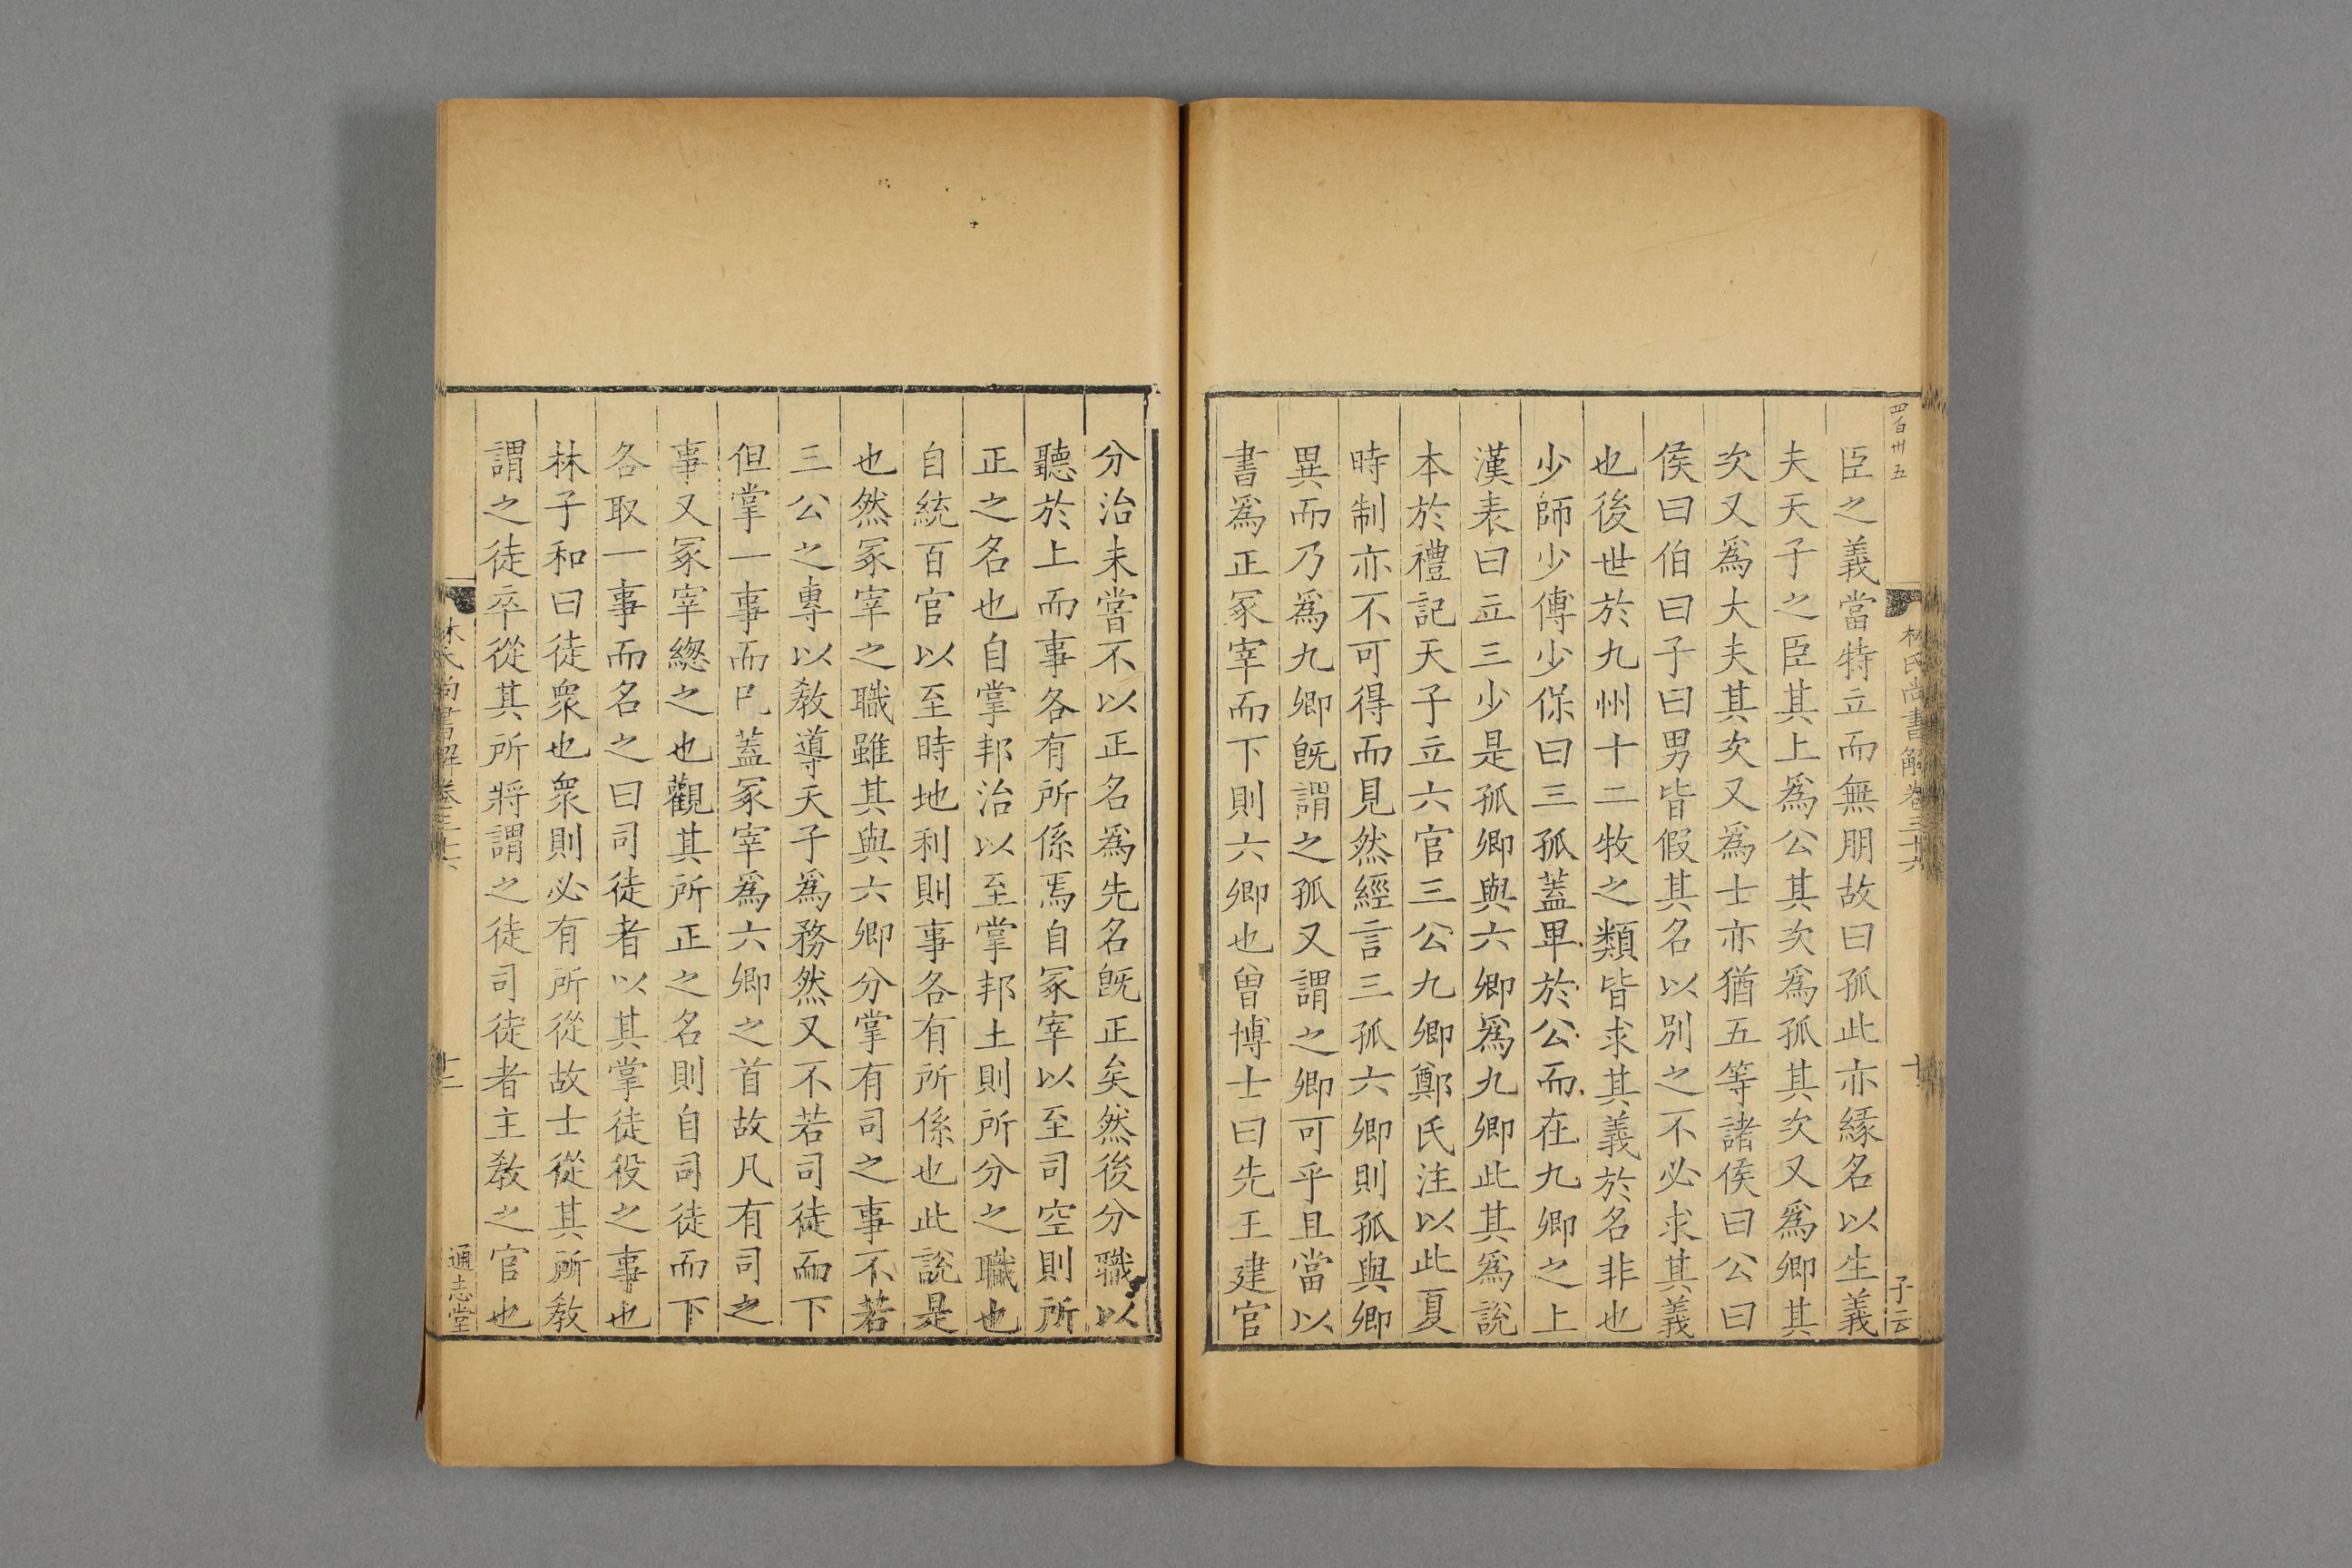 四百卅五
林氏尚書解卷三十六
子云
臣之義當特立而無朋故曰孤此亦緣名以生義
夫天子之臣其上爲公其次爲孤其次又爲卿其
次又爲大夫其次又爲士亦猶五等諸侯曰公曰
侯曰伯曰子曰男皆假其名以別之不必求其義
也後世於九州十二牧之類皆求其義於名非也
少師少傅少保曰三孤蓋卑於公而在九卿之上
漢表曰立三少是孤卿與六卿爲九卿此其爲說
本於禮記天子立六官三公九卿鄭氏注以此夏
時制亦不可得而見然經言三孤六卿則孤與卿
異而乃爲九卿旣謂之孤又謂之卿可乎且當以
書爲正冢宰而下則六卿也曾博士曰先王建官
分治未嘗不以正名爲先名旣正矣然後分職以
聽於上而事各有所係焉自冢宰以至司空則所
正之名也自掌邦治以至掌邦土則所分之職也
自統百官以至時地利則事各有所係也此說是
也然冢宰之職雖其與六卿分掌有司之事不若
三公之專以敎導天子爲務然又不若司徒而下
但掌一事而巳蓋冢宰爲六卿之首故凡有司之
事又冢宰緫之也觀其所正之名則自司徒而下
各取一事而名之曰司徒者以其掌徒役之事也
林子和曰徒衆也衆則必有所從故士從其所敎
謂之徒卒從其所將謂之徒司徒者主敎之官也
林氏尚書解卷三十六
十二
通志堂